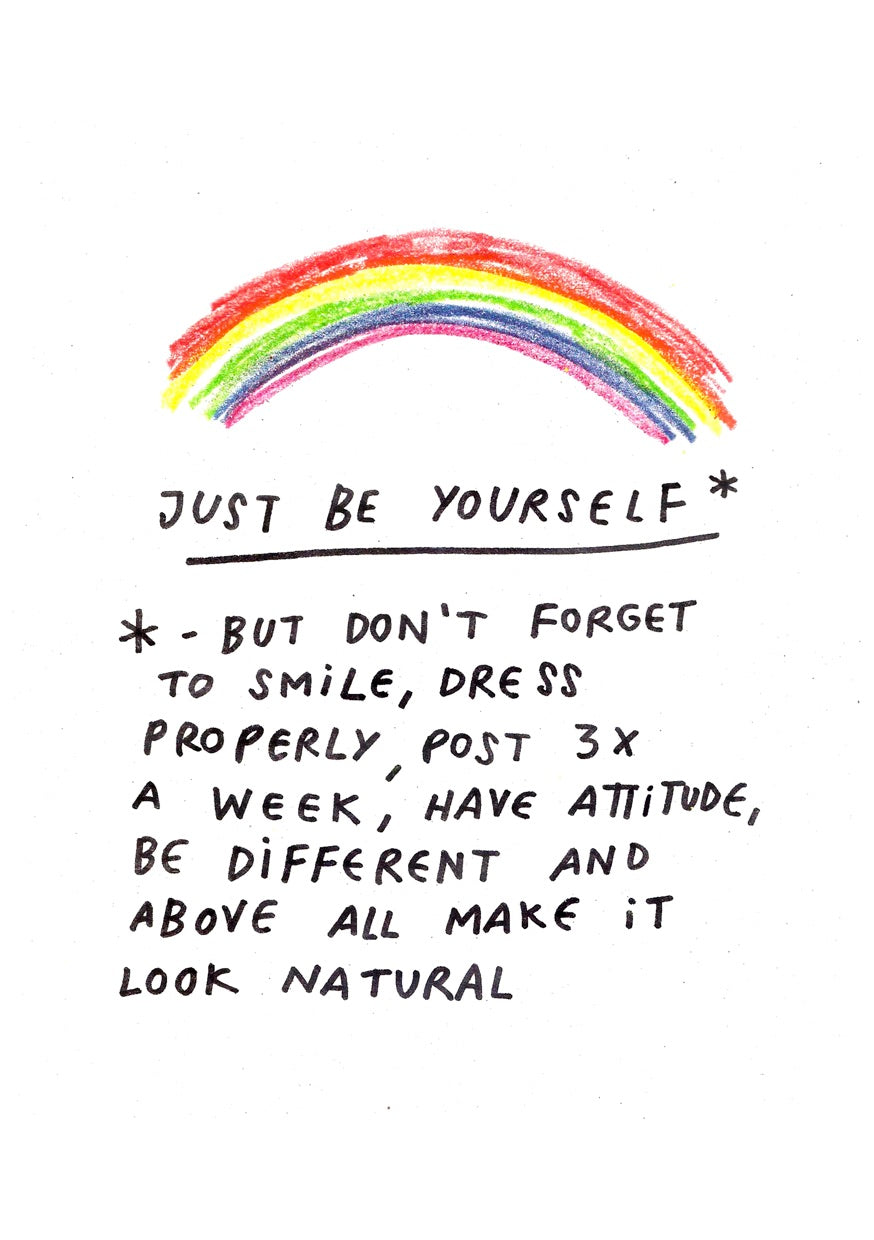 JUST BE YOURSELF*
* - BUT DON'T FORGET
TO SMiLE, DRESS
PROPERLY, POST 3X
A WEEK, HAVE ATTiTUDE,
BE DiFFERENT AND
ABOVE ALL MAKE iT
LOOK NATURAL